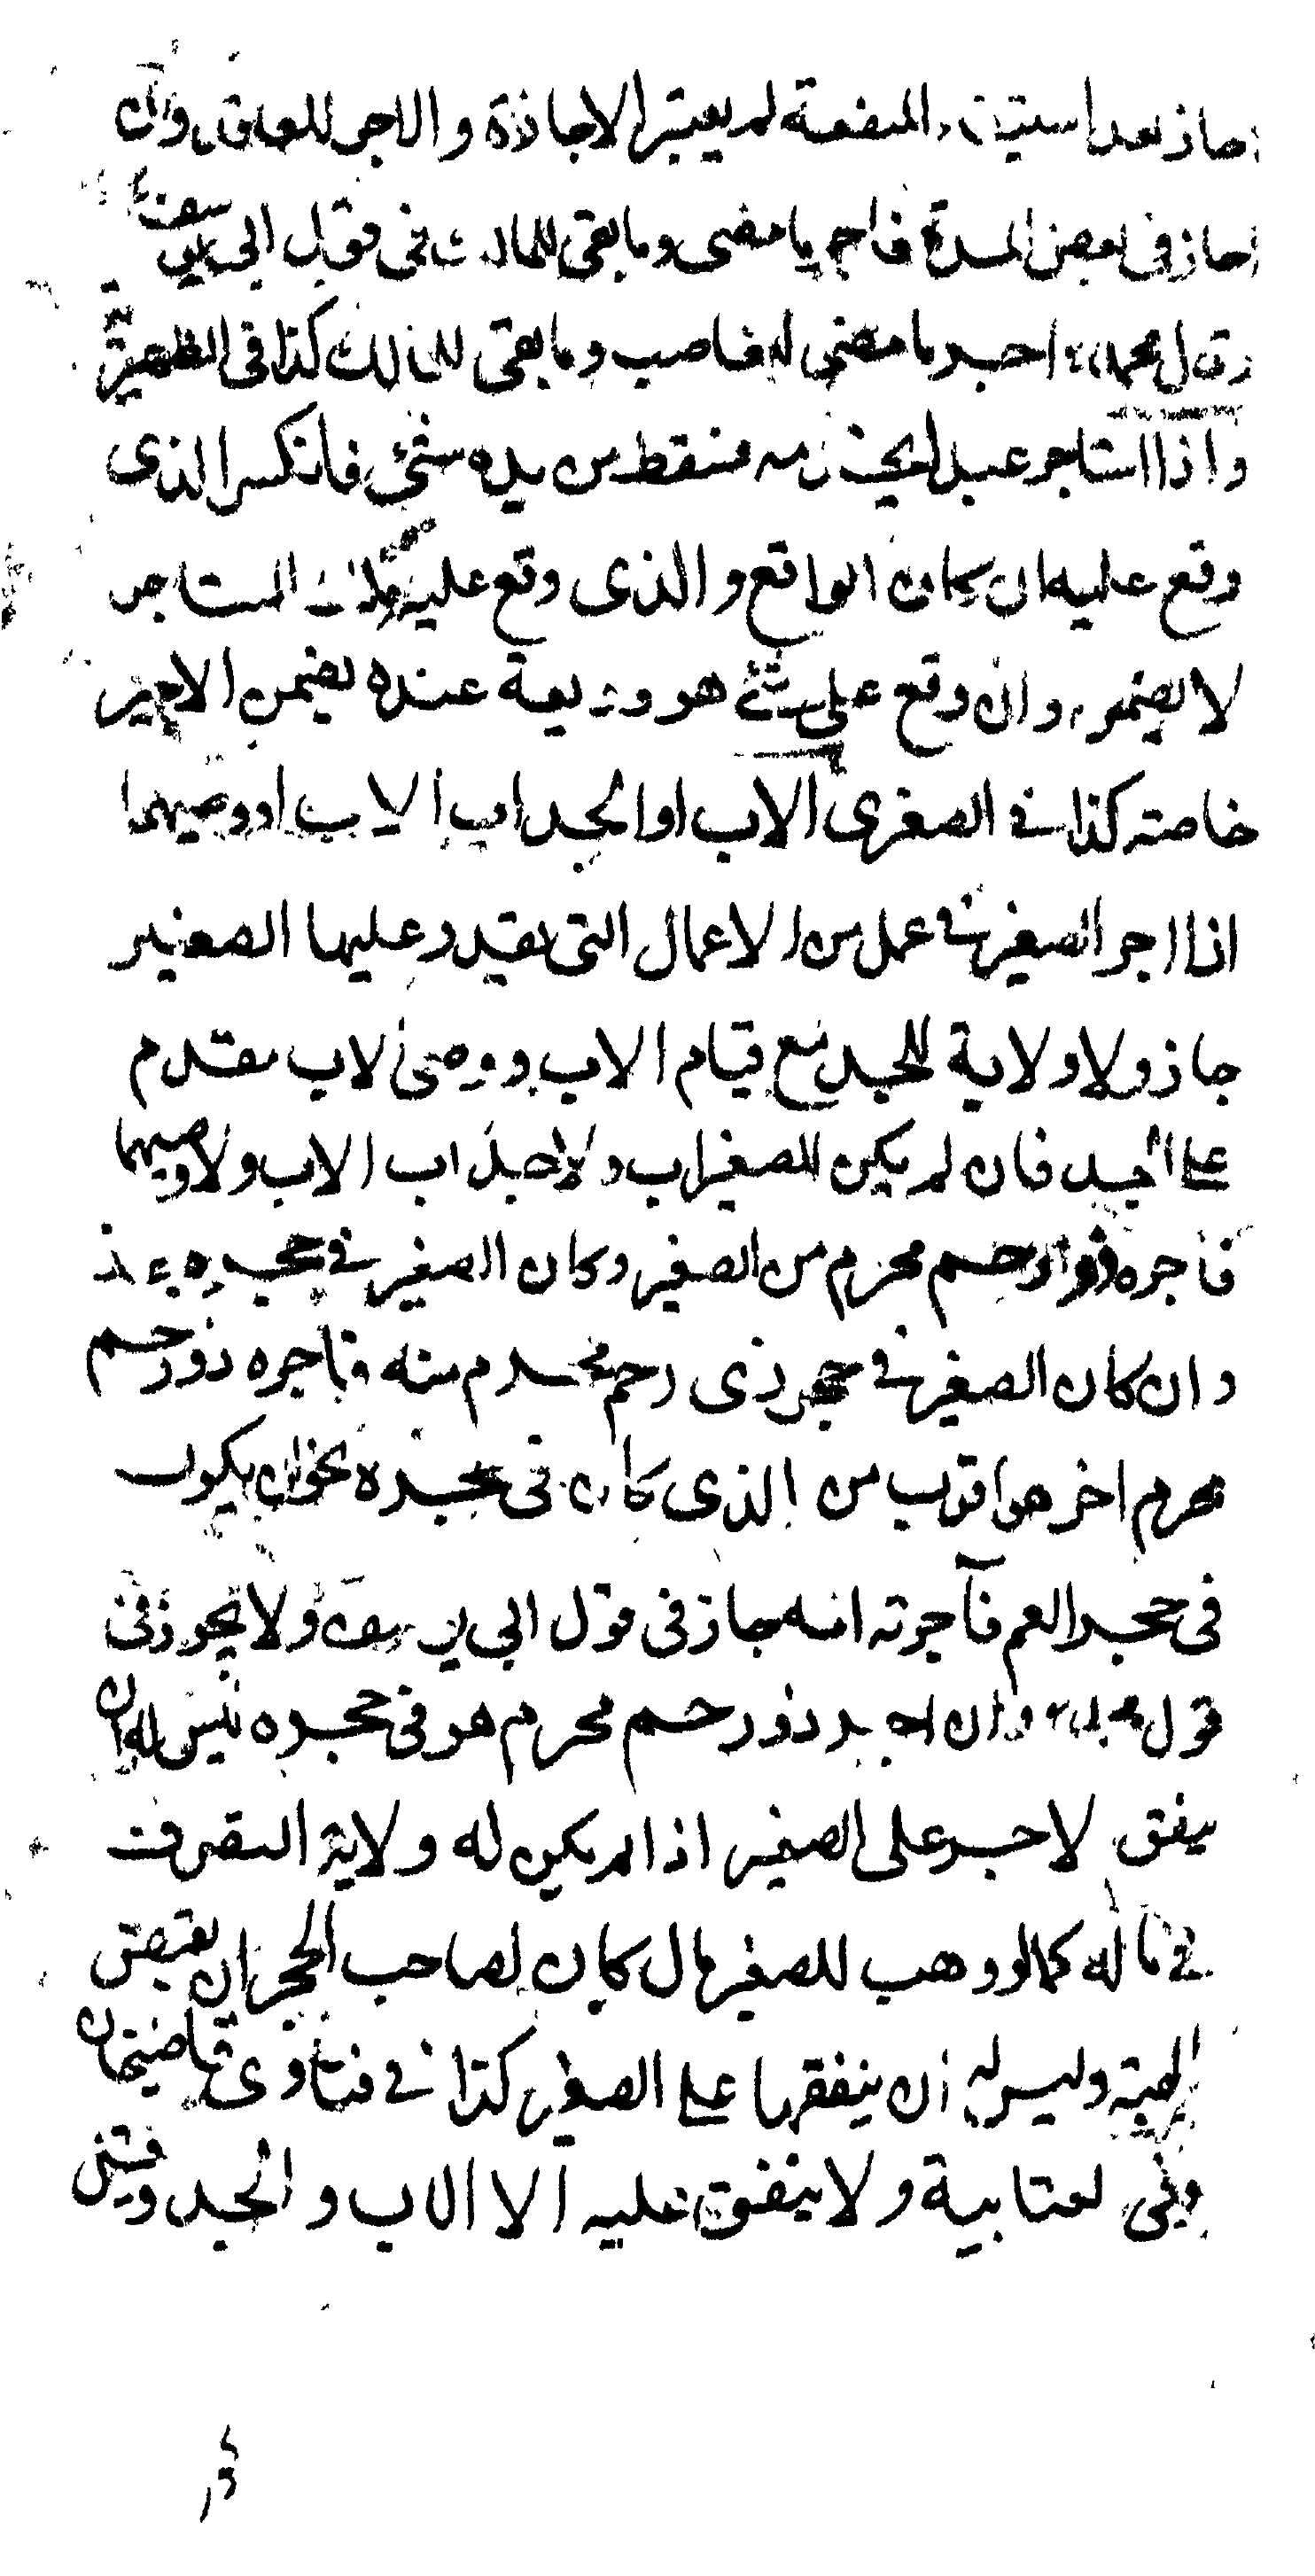 اجاز بعد استيفاء المنفعة لم يعتبر الاجازة والاجر للعاقد وان
اجاز في بعض المدة فاجر ما مضى وما بقى للمالك في قول ابي يوسف
وقال محمد اجر ما مضى للغاصب وما بقى للمالك كذا في الظهيرية
واذا استاجر عبدا يخدمه فسقط من يده شئ فانكسر الذى
وقع عليه ان كان الواقع والذى وقع عليه ملك المستاجر
لا يضمن وان وقع على شئ هو وديعة عنده يضمن الاجير
خاصته كذا في الصغرى الاب او الجد اب الاب او وصيهما
اذا اجر الصغير في عمل من الاعمال التى يقدر عليها الصغير
جاز ولا ولاية للجد مع قيام الاب ووصى الاب مقدم
على الجد فان لم يكن للصغير اب ولا جد اب الاب ولا وصيهما
فاجره ذو رحم محرم من الصغير وكان الصغير في حجره جاز
وان كان الصغير في حجر ذى رحم محرم منه فاجره ذو رحم
محرم اخر هو اقرب من الذى كان في حجره نحو ان يكون
في حجر العم فآجرته امه جاز في قول ابي يوسف ولا يجوز في
قول محمد وان اجره ذو رحم محرم هو في حجره ليس له ان
ينفق الاجر على الصغير اذا لم يكن له ولاية التصرف
في ماله كما لو وهب للصغير مال كان لصاحب الحجر ان يقبض
الهبة وليس له ان ينفقها على الصغير كذا في فتاوى قاضيخان
وفى العتابية ولا ينفق عليه الا الاب والجد